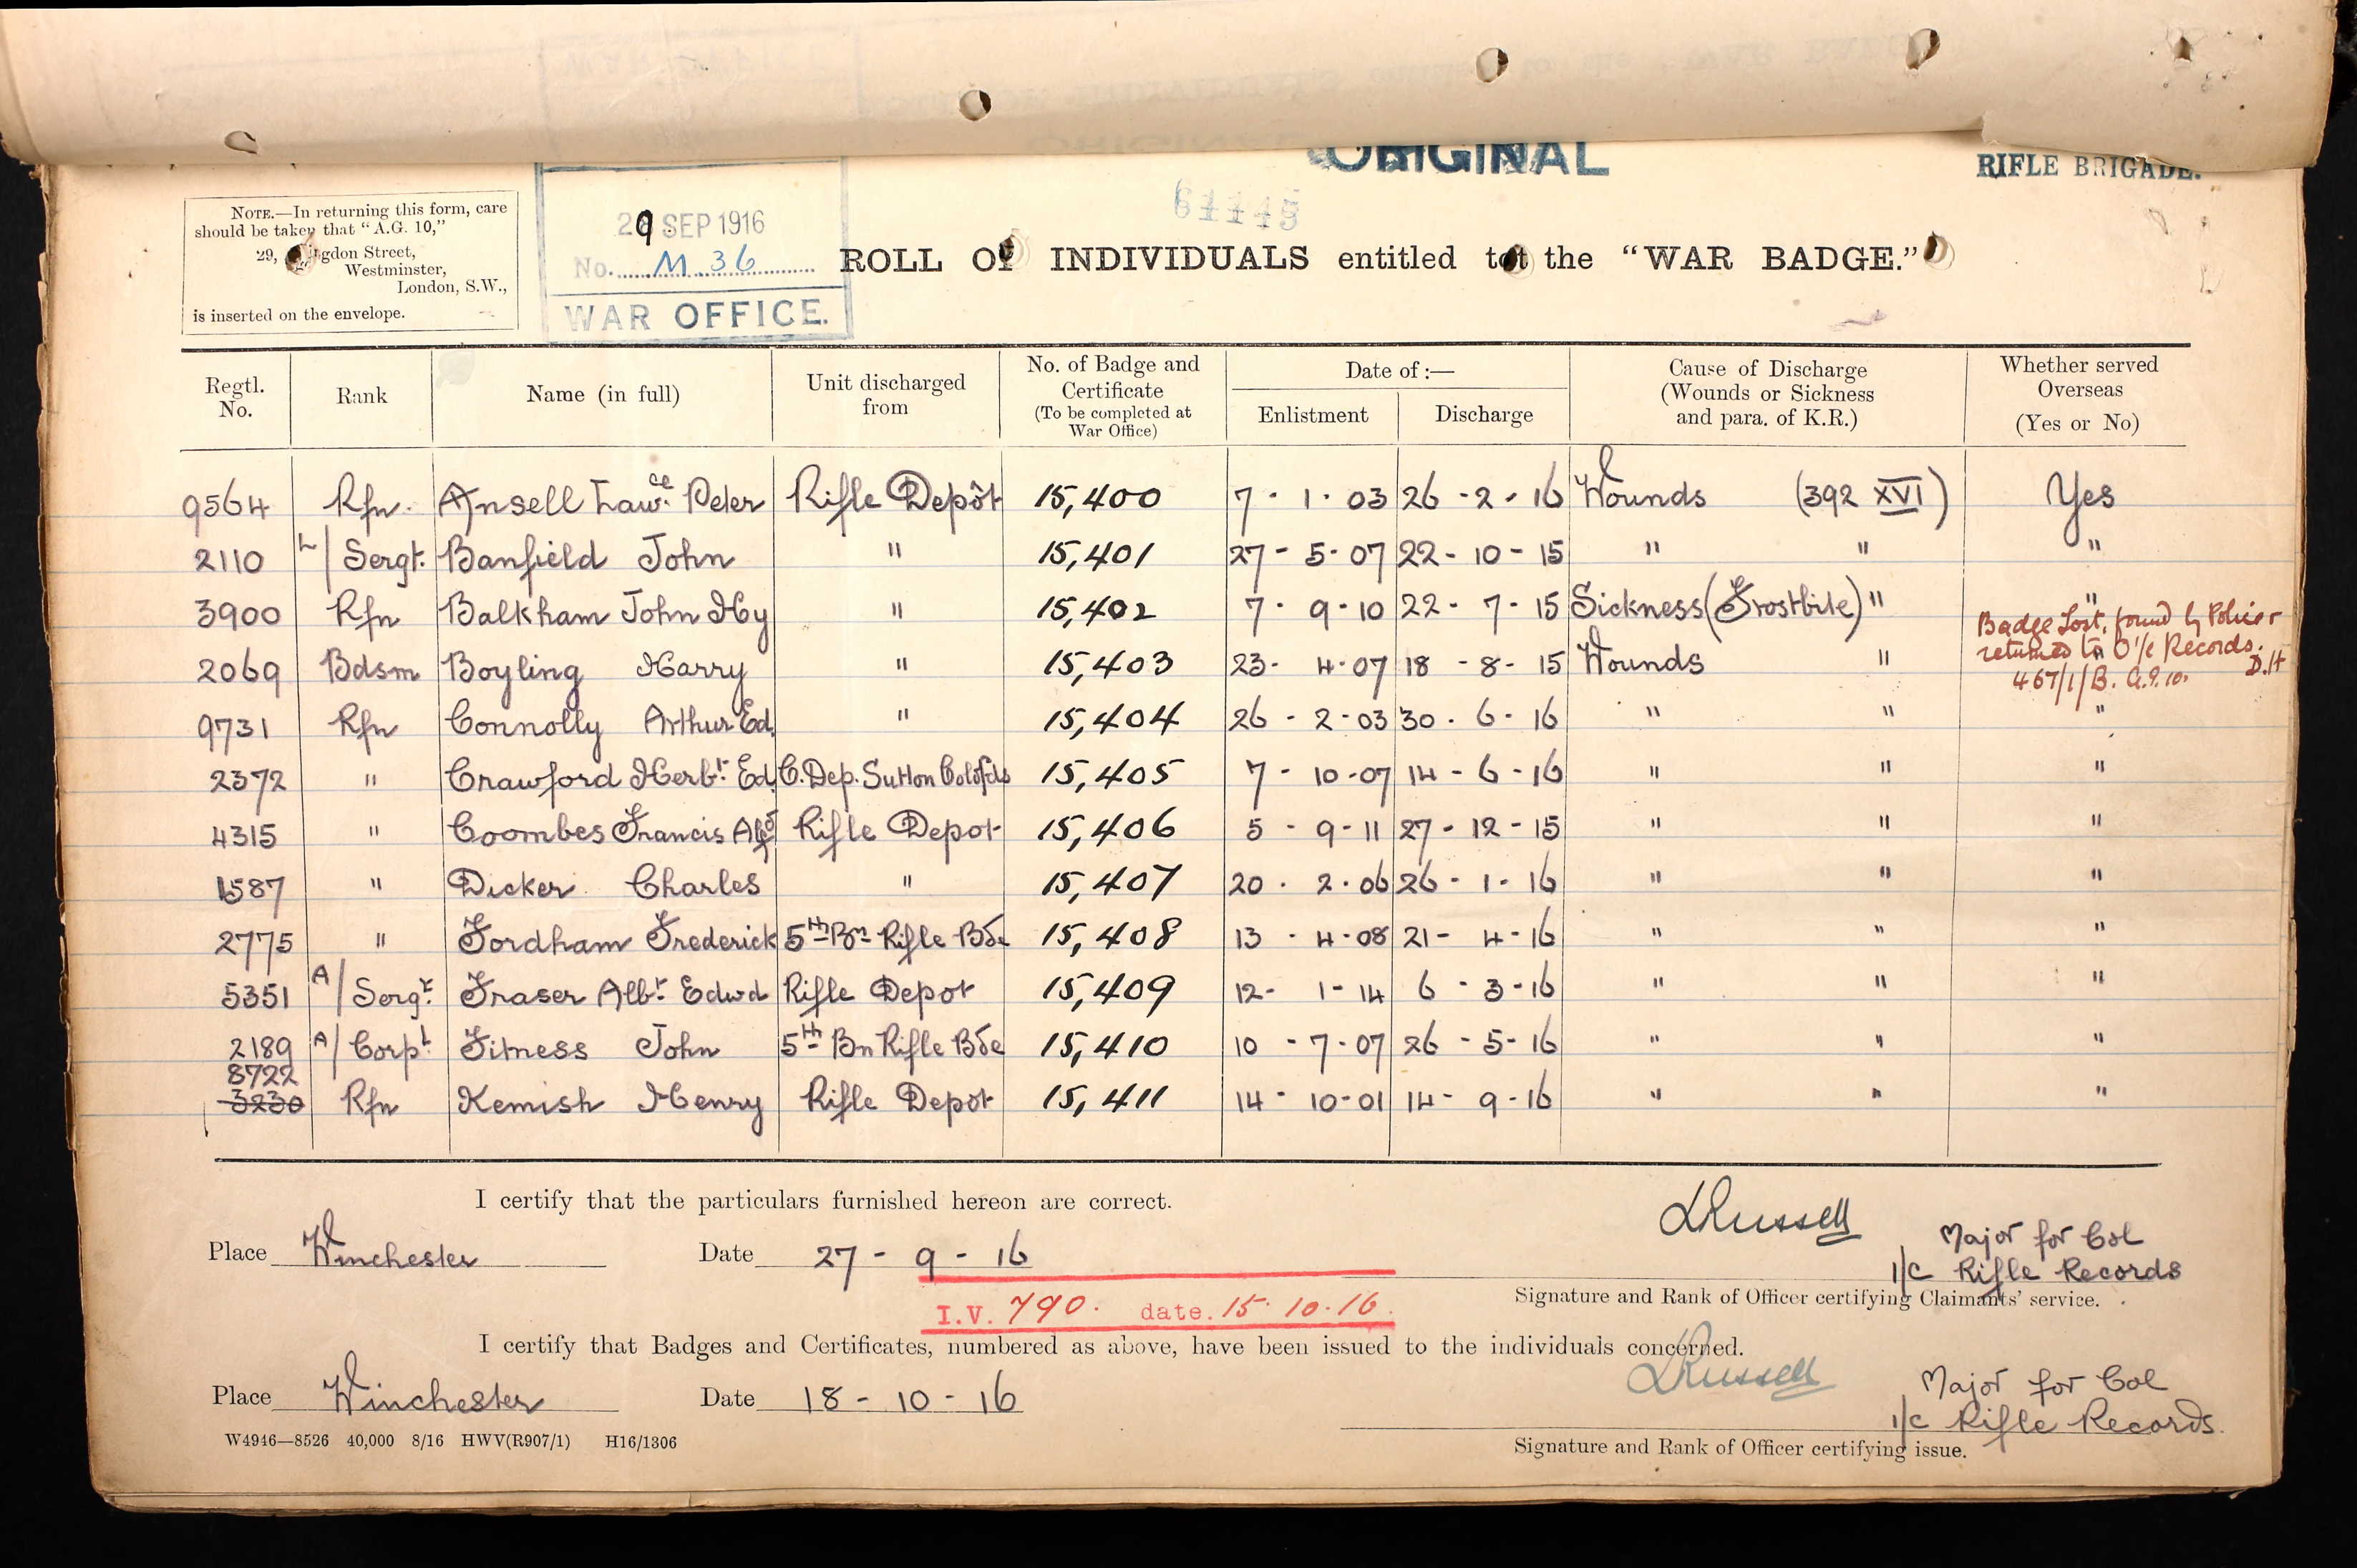 ORIGINAL
RIFLE BRIGADE.
NOTE.—In returning this form, care
should be taken that "A.G. 10,"
29, gdon Street,
Westminster,
London, S.W.,
is inserted on the envelope.
29 SEP 1916
No. M.36
WAR OFFICE.
ROLL OF INDIVIDUALS entitled to the "WAR BADGE."
Regtl. No. Rank Name (in full) Unit discharged from No. of Badge and Certificate (To be completed at War Office) Date of:— Enlistment Discharge Cause of Discharge (Wounds or Sickness and para. of K.R.) Whether served Overseas (Yes or No)
9564 Rfn. Ansell Lawce. Peter Rifle Depôt 15,400 7 - 1 - 03 26 - 2 - 16 Wounds (392 XVI) Yes
2110 L/Sergt. Banfield John " 15,401 27 - 5 - 07 22 - 10 - 15 " " "
3900 Rfn Balkham John Hy " 15,402 7 - 9 - 10 22 - 7 - 15 Sickness (Frostbite) " "
2069 Bdsm Boyling Harry " 15,403 23 - 4 - 07 18 - 8 - 15 Wounds "
Badge Lost, found by Police &
returned to O i/c Records.
467/1/B. A.G.10. D.H
9731 Rfn Connolly Arthur Ed. " 15,404 26 - 2 - 03 30 - 6 - 16 " " "
2372 " Crawford Herbt. Ed. C. Dep. Sutton Coldfd 15,405 7 - 10 - 07 14 - 6 - 16 " " "
4315 " Coombes Francis Alfd Rifle Depot 15,406 5 - 9 - 11 27 - 12 - 15 " " "
1587 " Dicker Charles " 15,407 20 - 2 - 06 26 - 1 - 16 " " "
2775 " Fordham Frederick 5th Bn Rifle Bde 15,408 13 - 4 - 08 21 - 4 - 16 " " "
5351 A/Sergt. Fraser Albt. Edwd Rifle Depot 15,409 12 - 1 - 14 6 - 3 - 16 " " "
2189 A/Corpl. Fitness John 5th Bn Rifle Bde 15,410 10 - 7 - 07 26 - 5 - 16 " " "
8722
3230 Rfn Kemish Henry Rifle Depôt 15,411 14 - 10 - 01 14 - 9 - 16 " " "
I certify that the particulars furnished hereon are correct.
Russell
Major for Col
Place Winchester Date 27 - 9 - 16 i/c Rifle Records
Signature and Rank of Officer certifying Claimants' service.
I.V. 790. date. 15.10.16.
I certify that Badges and Certificates, numbered as above, have been issued to the individuals concerned.
Russell
Major for Col
Place Winchester Date 18 - 10 - 16 i/c Rifle Records.
W4946—8526 40,000 8/16 HWV(R907/1) H16/1306
Signature and Rank of Officer certifying issue.